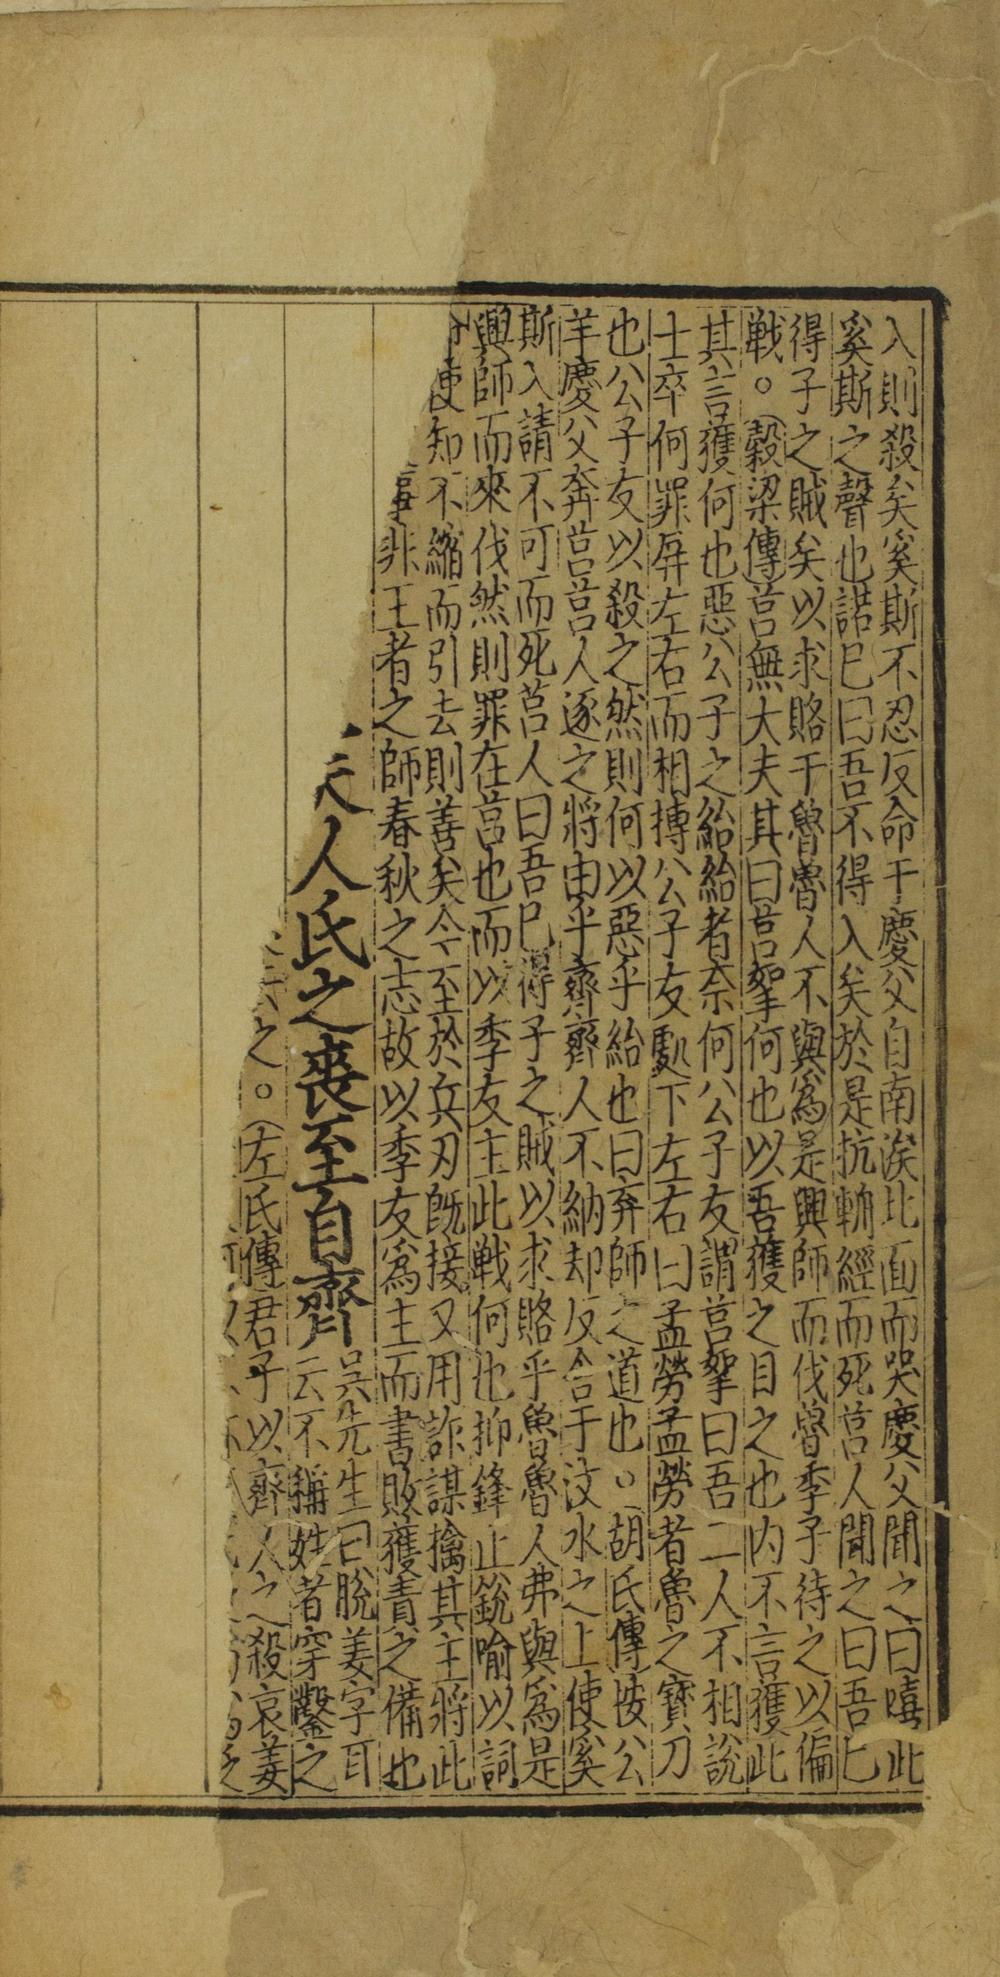 入則殺矣奚斯不忍反命于慶父自南涘北面而哭慶父聞之曰嘻此
奚斯之聲也諾已曰吾不得入矣於是抗輈經而死莒人聞之曰吾已
得子之賊矣以求賂于魯魯人不與爲是興師而伐魯季子待之以偏
戦。(穀梁傳)莒無大夫其曰莒挐何也以吾獲之目之也内不言獲此
其言獲何也惡公子之紿紿者奈何公子友謂莒挐曰吾二人不相說
士卒何罪屏左右而相摶公子友處下左右曰孟勞孟勞者魯之寶刀
也公子友以殺之然則何以惡乎紿也曰弃師之道也。(胡氏傳按公
羊慶父奔莒莒人逐之將由乎齊齊人不納却反舍于汶水之上使奚
斯入請不可而死莒人曰吾已得子之賊以求賂乎魯魯人弗與爲是
興師而來伐然則罪在莒也而以季友主此戦何也抑鋒止銳喻以詞
命使知不縮而引去則善矣今至於兵刃旣接又用詐謀擒其主將此
事非王者之師春秋之志故以季友爲主而書敗獲責之備也
夫人氏之喪至自齊
吳先生曰脫姜字耳
云不稱姓者穿鑿之
之。(左氏傳君子以齊人之殺哀姜